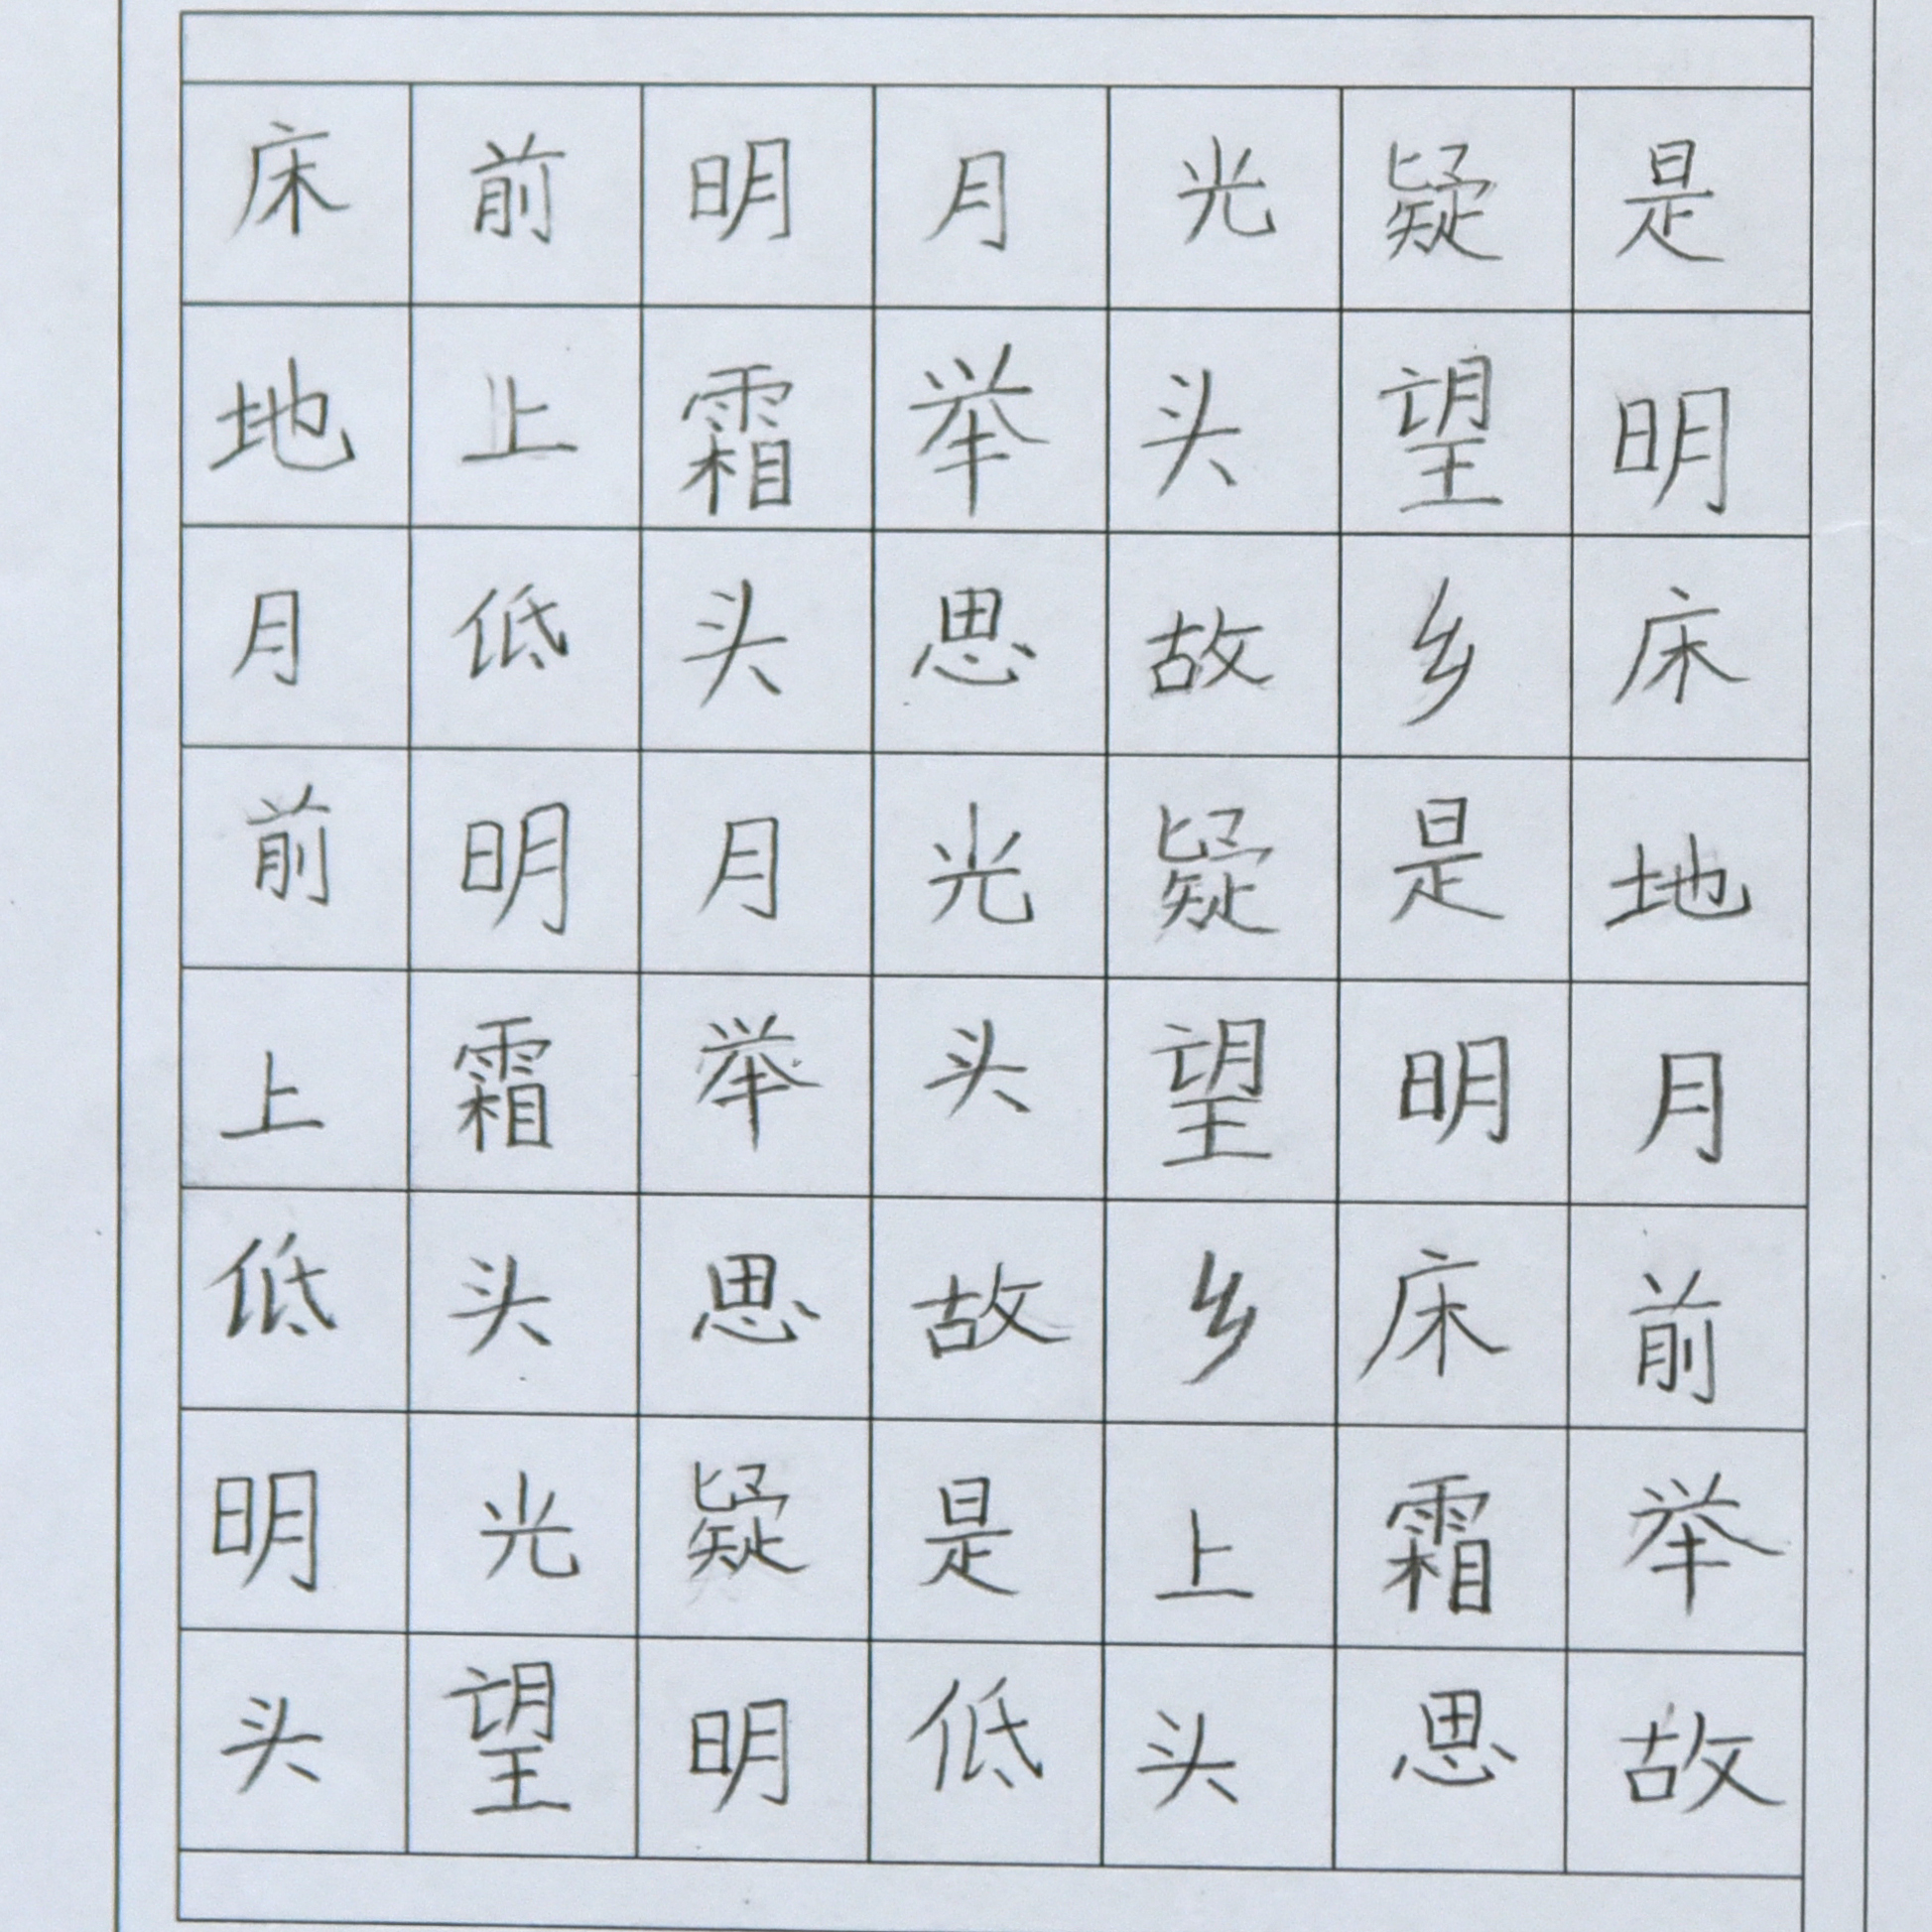 床前明月光疑是
地上霜举头望明
月低头思故乡床
前明月光疑是地
上霜举头望明月
低头思故乡床前
明光疑是上霜举
头望明低头思故